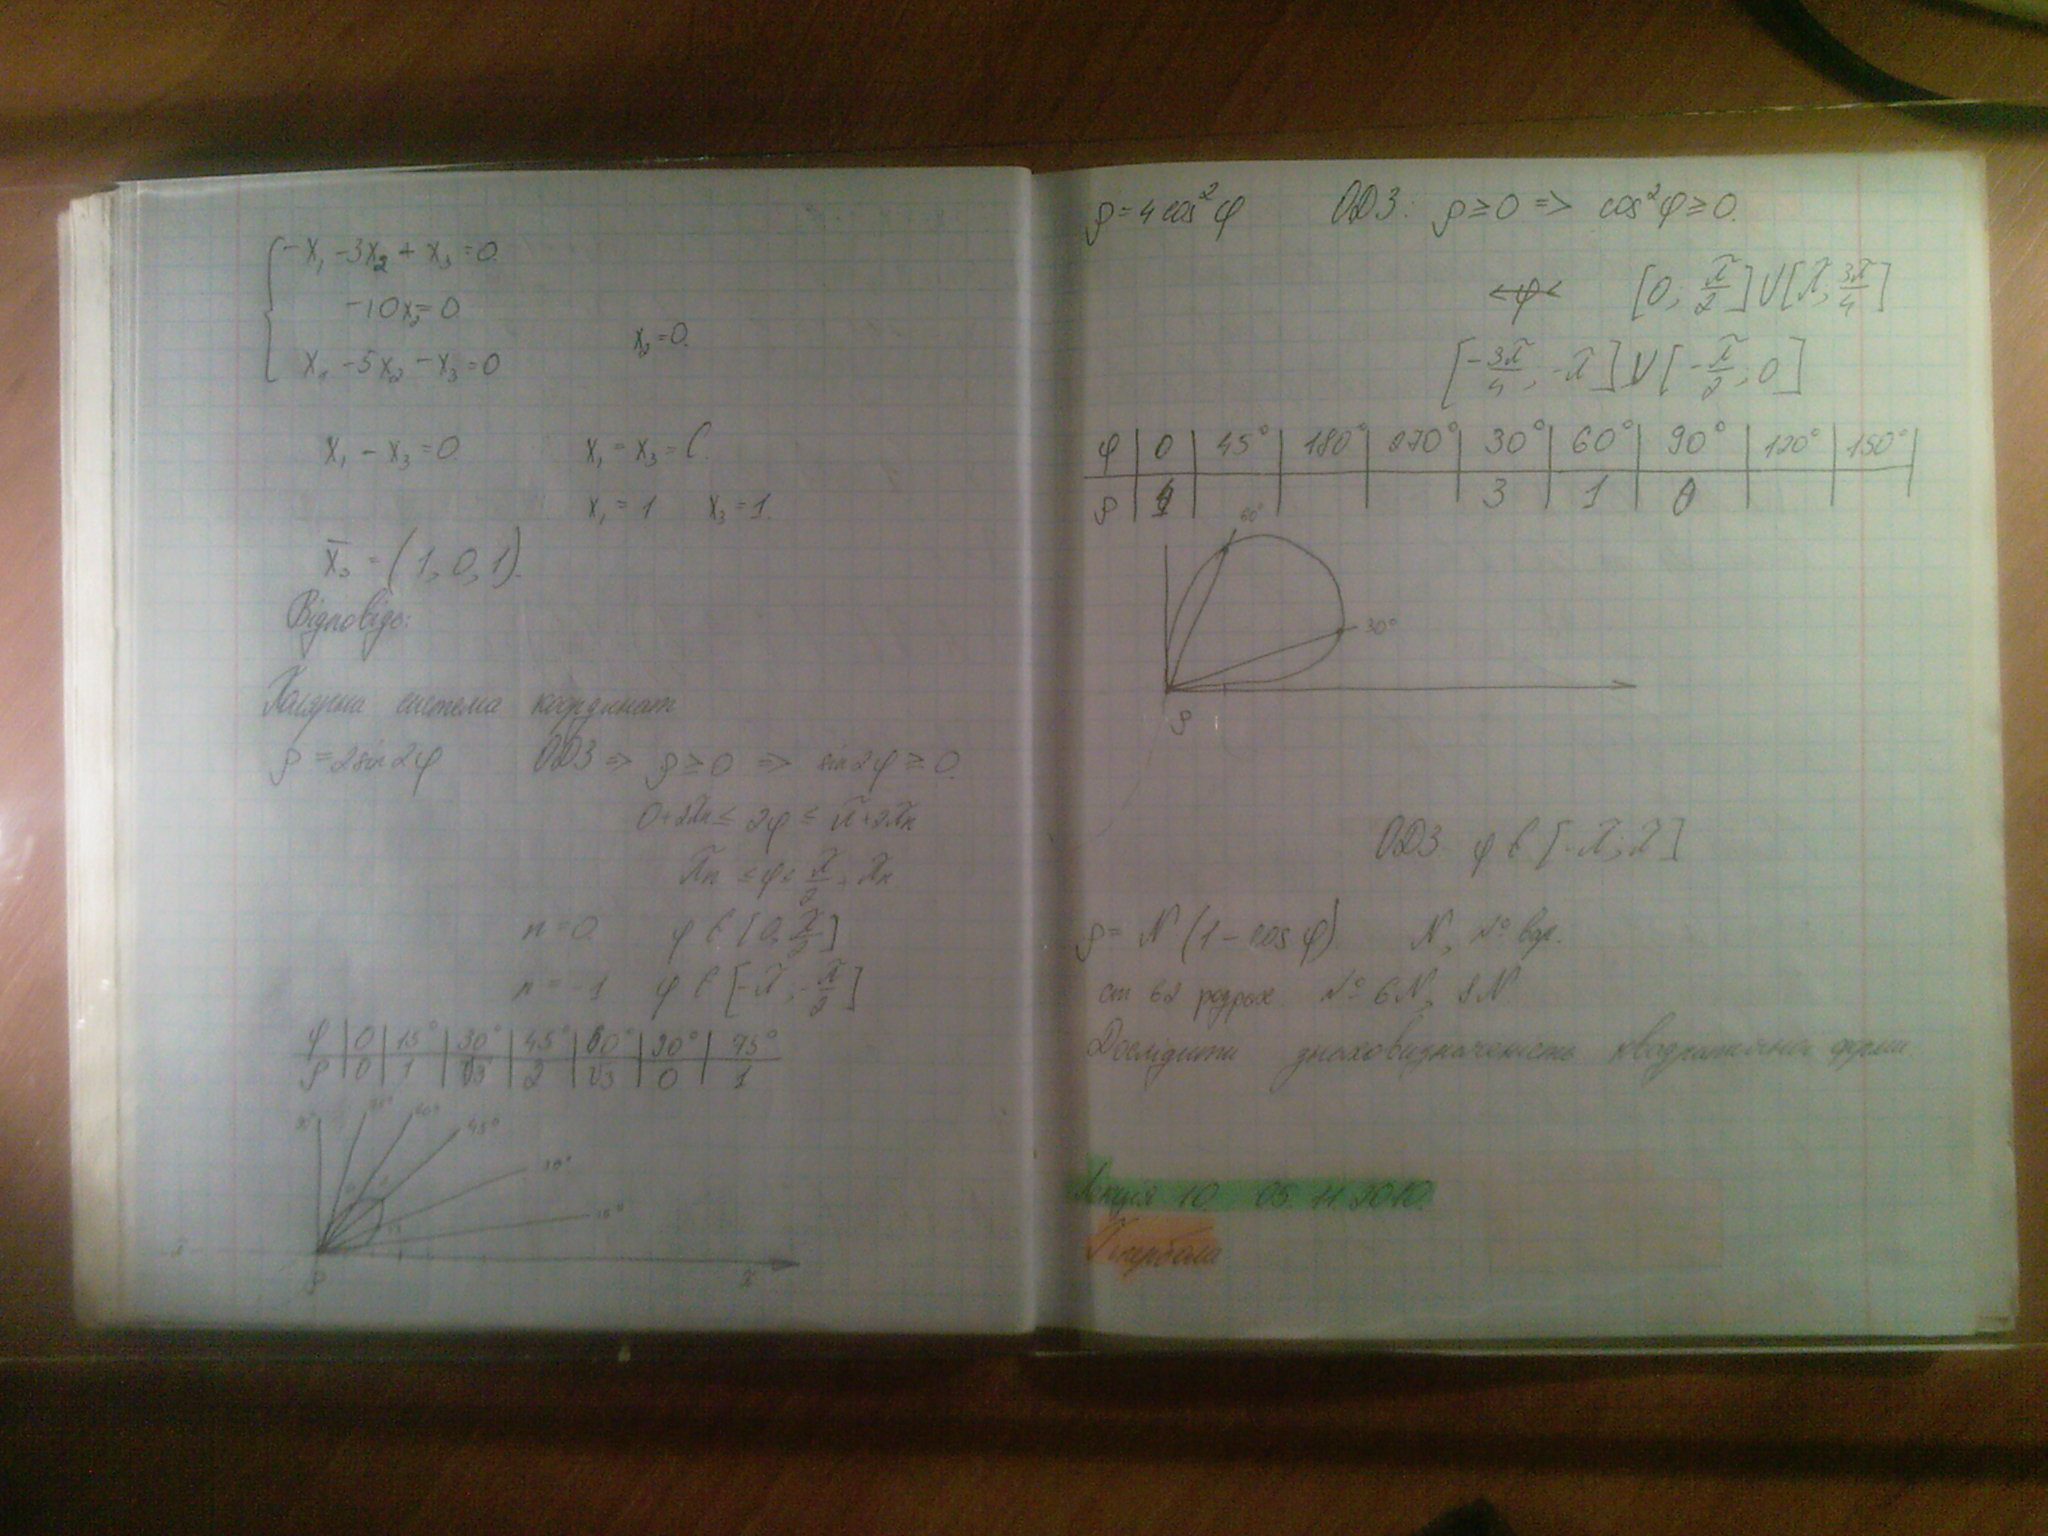 -x₁ -3x₂ + x₃ = 0
-10x₂ = 0
x₂ = 0.
x₁ -5x₂ -x₃ = 0
x₁ - x₃ = 0 x₁ = x₃ = C.
x₁ = 1 x₃ = 1.
x̄₃ = (1, 0, 1).
Відповідь:
Полярна система координат
ρ = 2sin2φ ОДЗ => ρ ≥ 0 => sin2φ ≥ 0.
0+2πn ≤ 2φ ≤ π+2πn
πn ≤ φ ≤ π/2 + πn
n = 0. φ ∈ [0; π/2]
n = -1 φ ∈ [-π; -π/2]
φ | 0 | 15° | 30° | 45° | 60° | 90° | 75°
ρ | 0 | 1 | √3 | 2 | √3 | 0 | 1
45°
30°
15°
ρ
ρ = 4cos²φ ОДЗ: ρ ≥ 0 => cos²φ ≥ 0.
<φ< [0; π/2] U [π; 3π/4]
[-3π/4; -π] U [-π/2; 0]
φ | 0 | 45° | 180° | 270° | 30° | 60° | 90° | 120° | 150° |
ρ | 4 | | | | 3 | 1 | 0 | | |
60°
30°
ρ
ОДЗ φ ∈ [-π; π]
ρ = N (1 - cos φ). N, № вар.
№ 6N, 8N
Дослідити знаковизначеність квадратичної форми.
Лекція 10. 05.11.2010.
Гіпербола